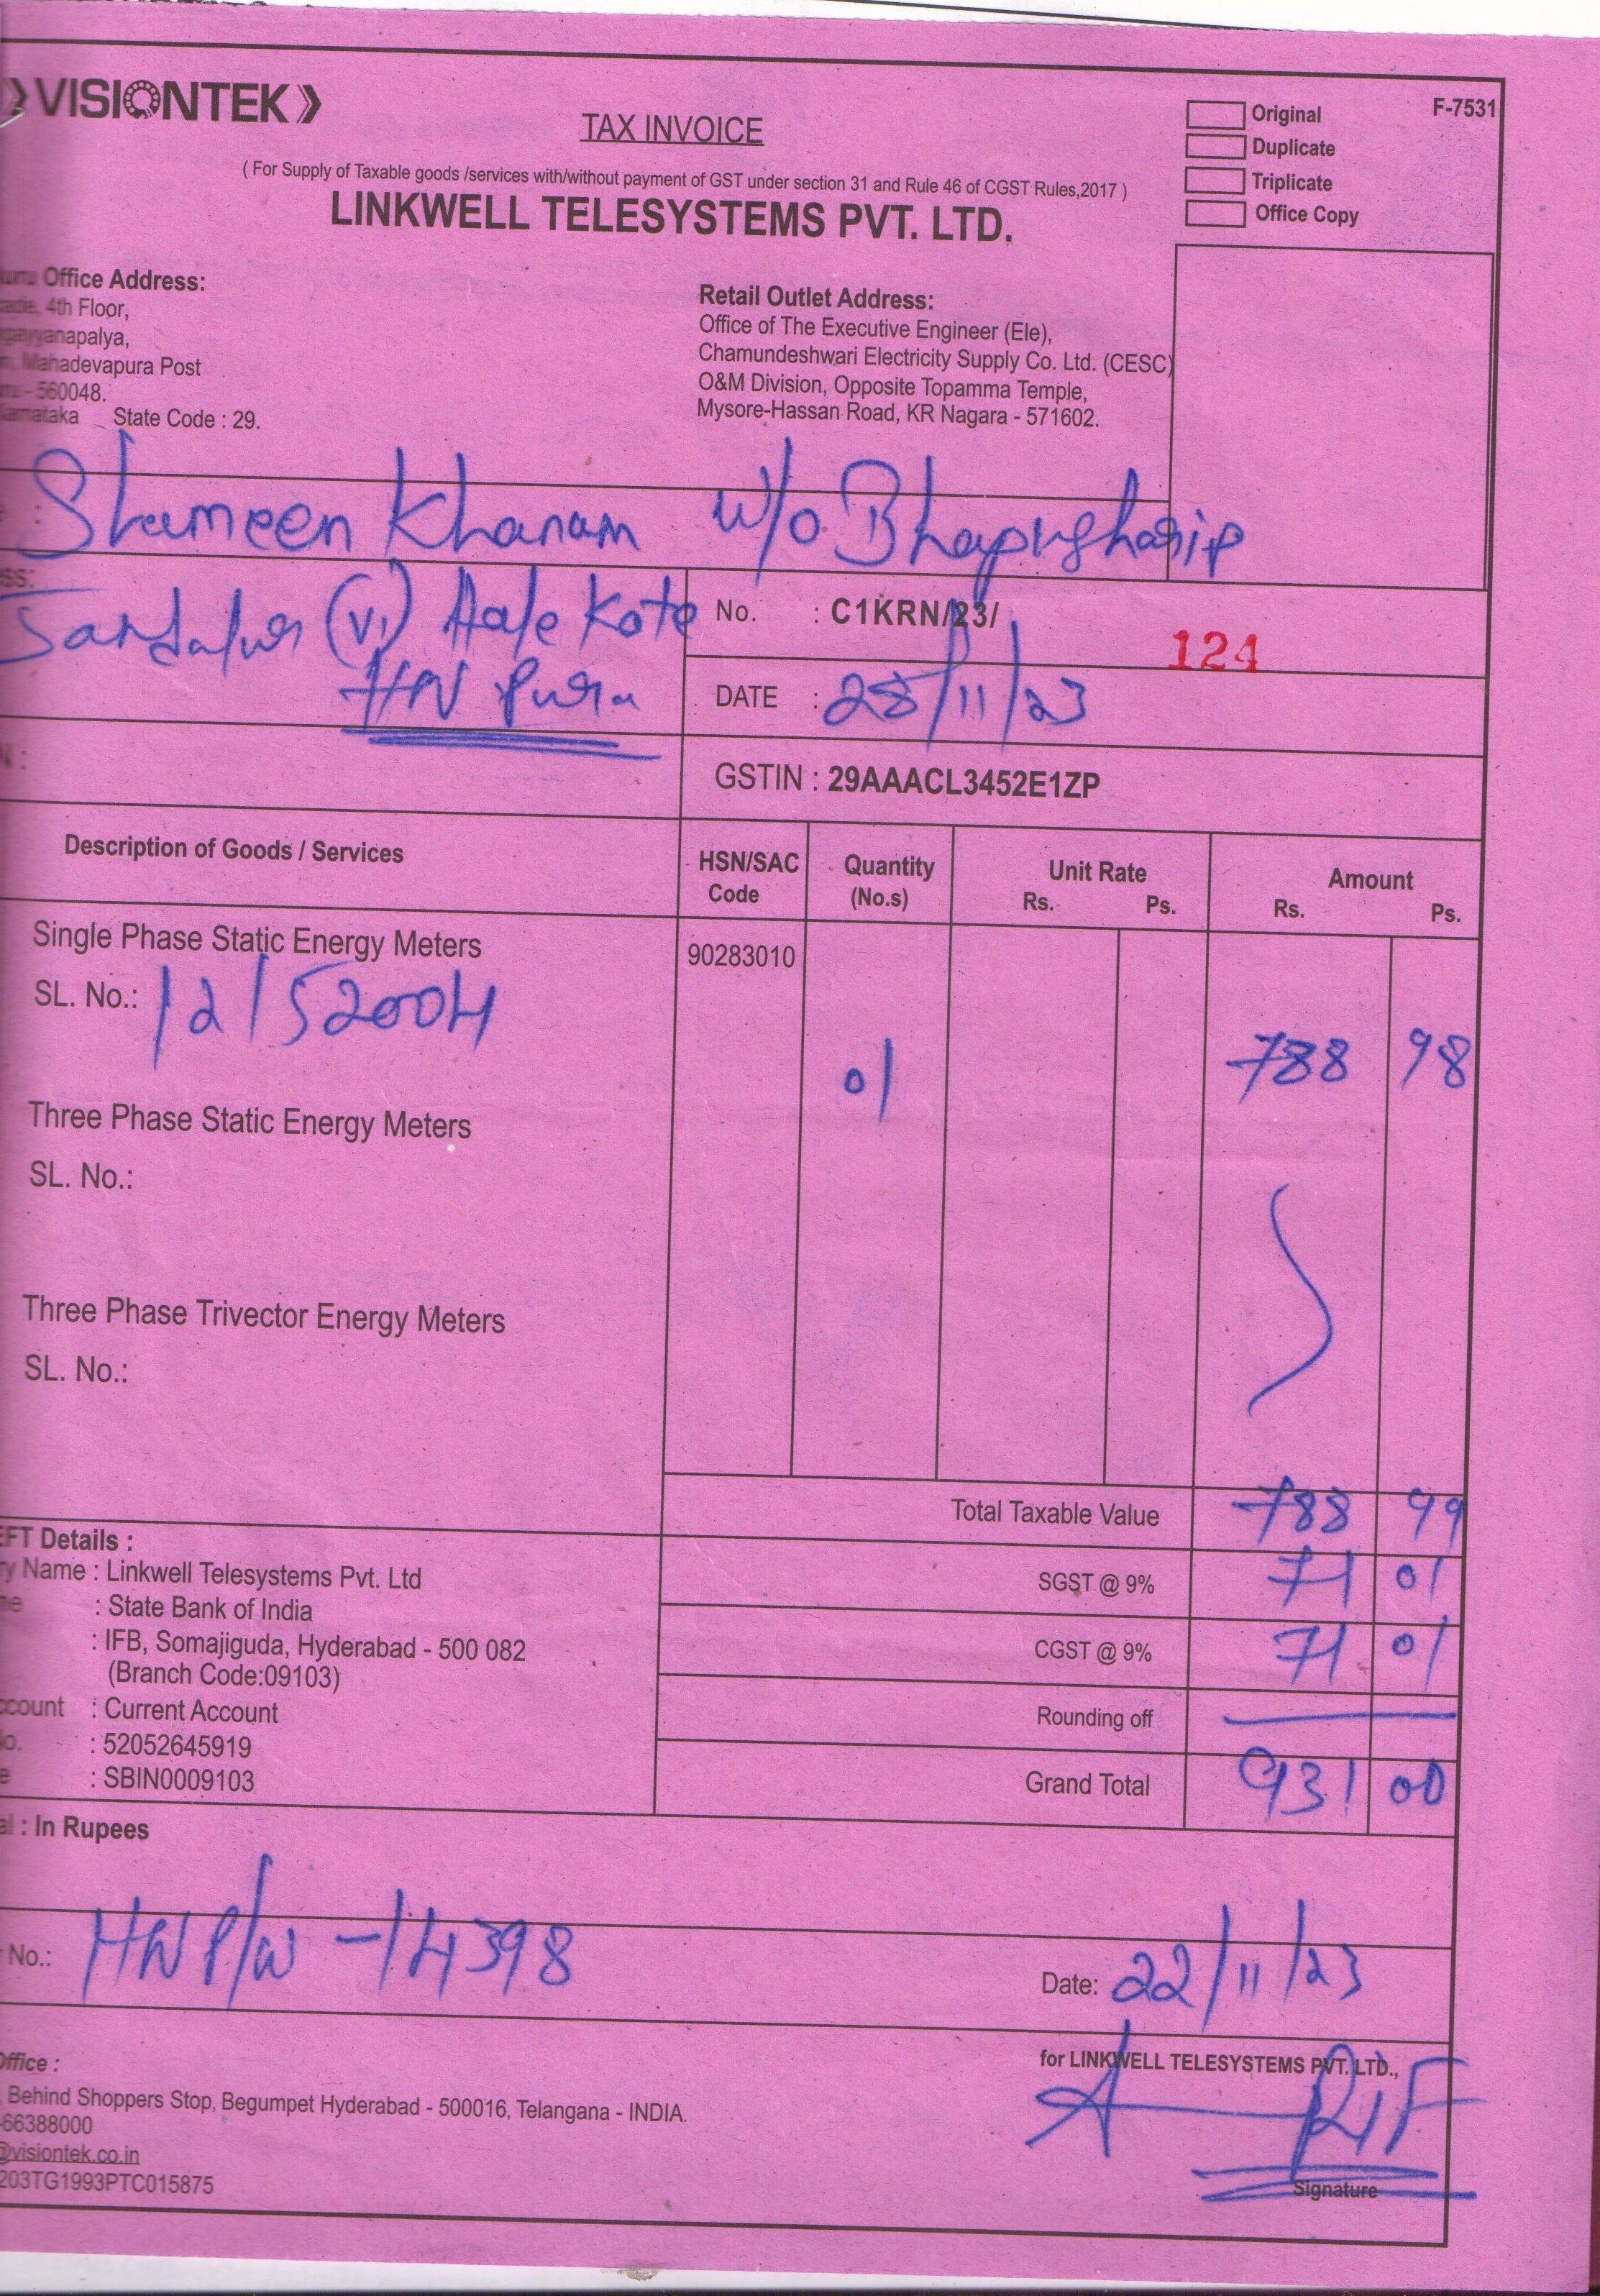 VISIONTEK
TAX INVOICE
Original
F-7531
Duplicate
Triplicate
Office Copy
( For Supply of Taxable goods /services with/without payment of GST under section 31 and Rule 46 of CGST Rules,2017 )
LINKWELL TELESYSTEMS PVT. LTD.
Office Address:
4th Floor,
Mahadevapura Post
- 560048.
State Code : 29.
Retail Outlet Address:
Office of The Executive Engineer (Ele),
Chamundeshwari Electricity Supply Co. Ltd. (CESC)
O&M Division, Opposite Topamma Temple,
Mysore-Hassan Road, KR Nagara - 571602.
: Shameen Khanam w/o
(V) Hale Kote
HN Pura
No. : C1KRN/23/ 124
DATE : 28/11/23
GSTIN : 29AAACL3452E1ZP
Description of Goods / Services
HSN/SAC Code
Quantity (No.s)
Unit Rate Rs. Ps.
Amount Rs. Ps.
Single Phase Static Energy Meters 90283010
SL. No.: 12152004
01 788 98
Three Phase Static Energy Meters
SL. No.:
Three Phase Trivector Energy Meters
SL. No.:
Total Taxable Value 788 99
SGST @ 9% 71 01
CGST @ 9% 71 01
Rounding off
Grand Total 931 00
Details :
Name : Linkwell Telesystems Pvt. Ltd
: State Bank of India
: IFB, Somajiguda, Hyderabad - 500 082
(Branch Code:09103)
: Current Account
: 52052645919
: SBIN0009103
: In Rupees
No.: HNP/W - 14398
Date: 22/11/23
for LINKWELL TELESYSTEMS PVT. LTD.,
Signature
Office :
Behind Shoppers Stop, Begumpet Hyderabad - 500016, Telangana - INDIA.
66388000
@visiontek.co.in
203TG1993PTC015875